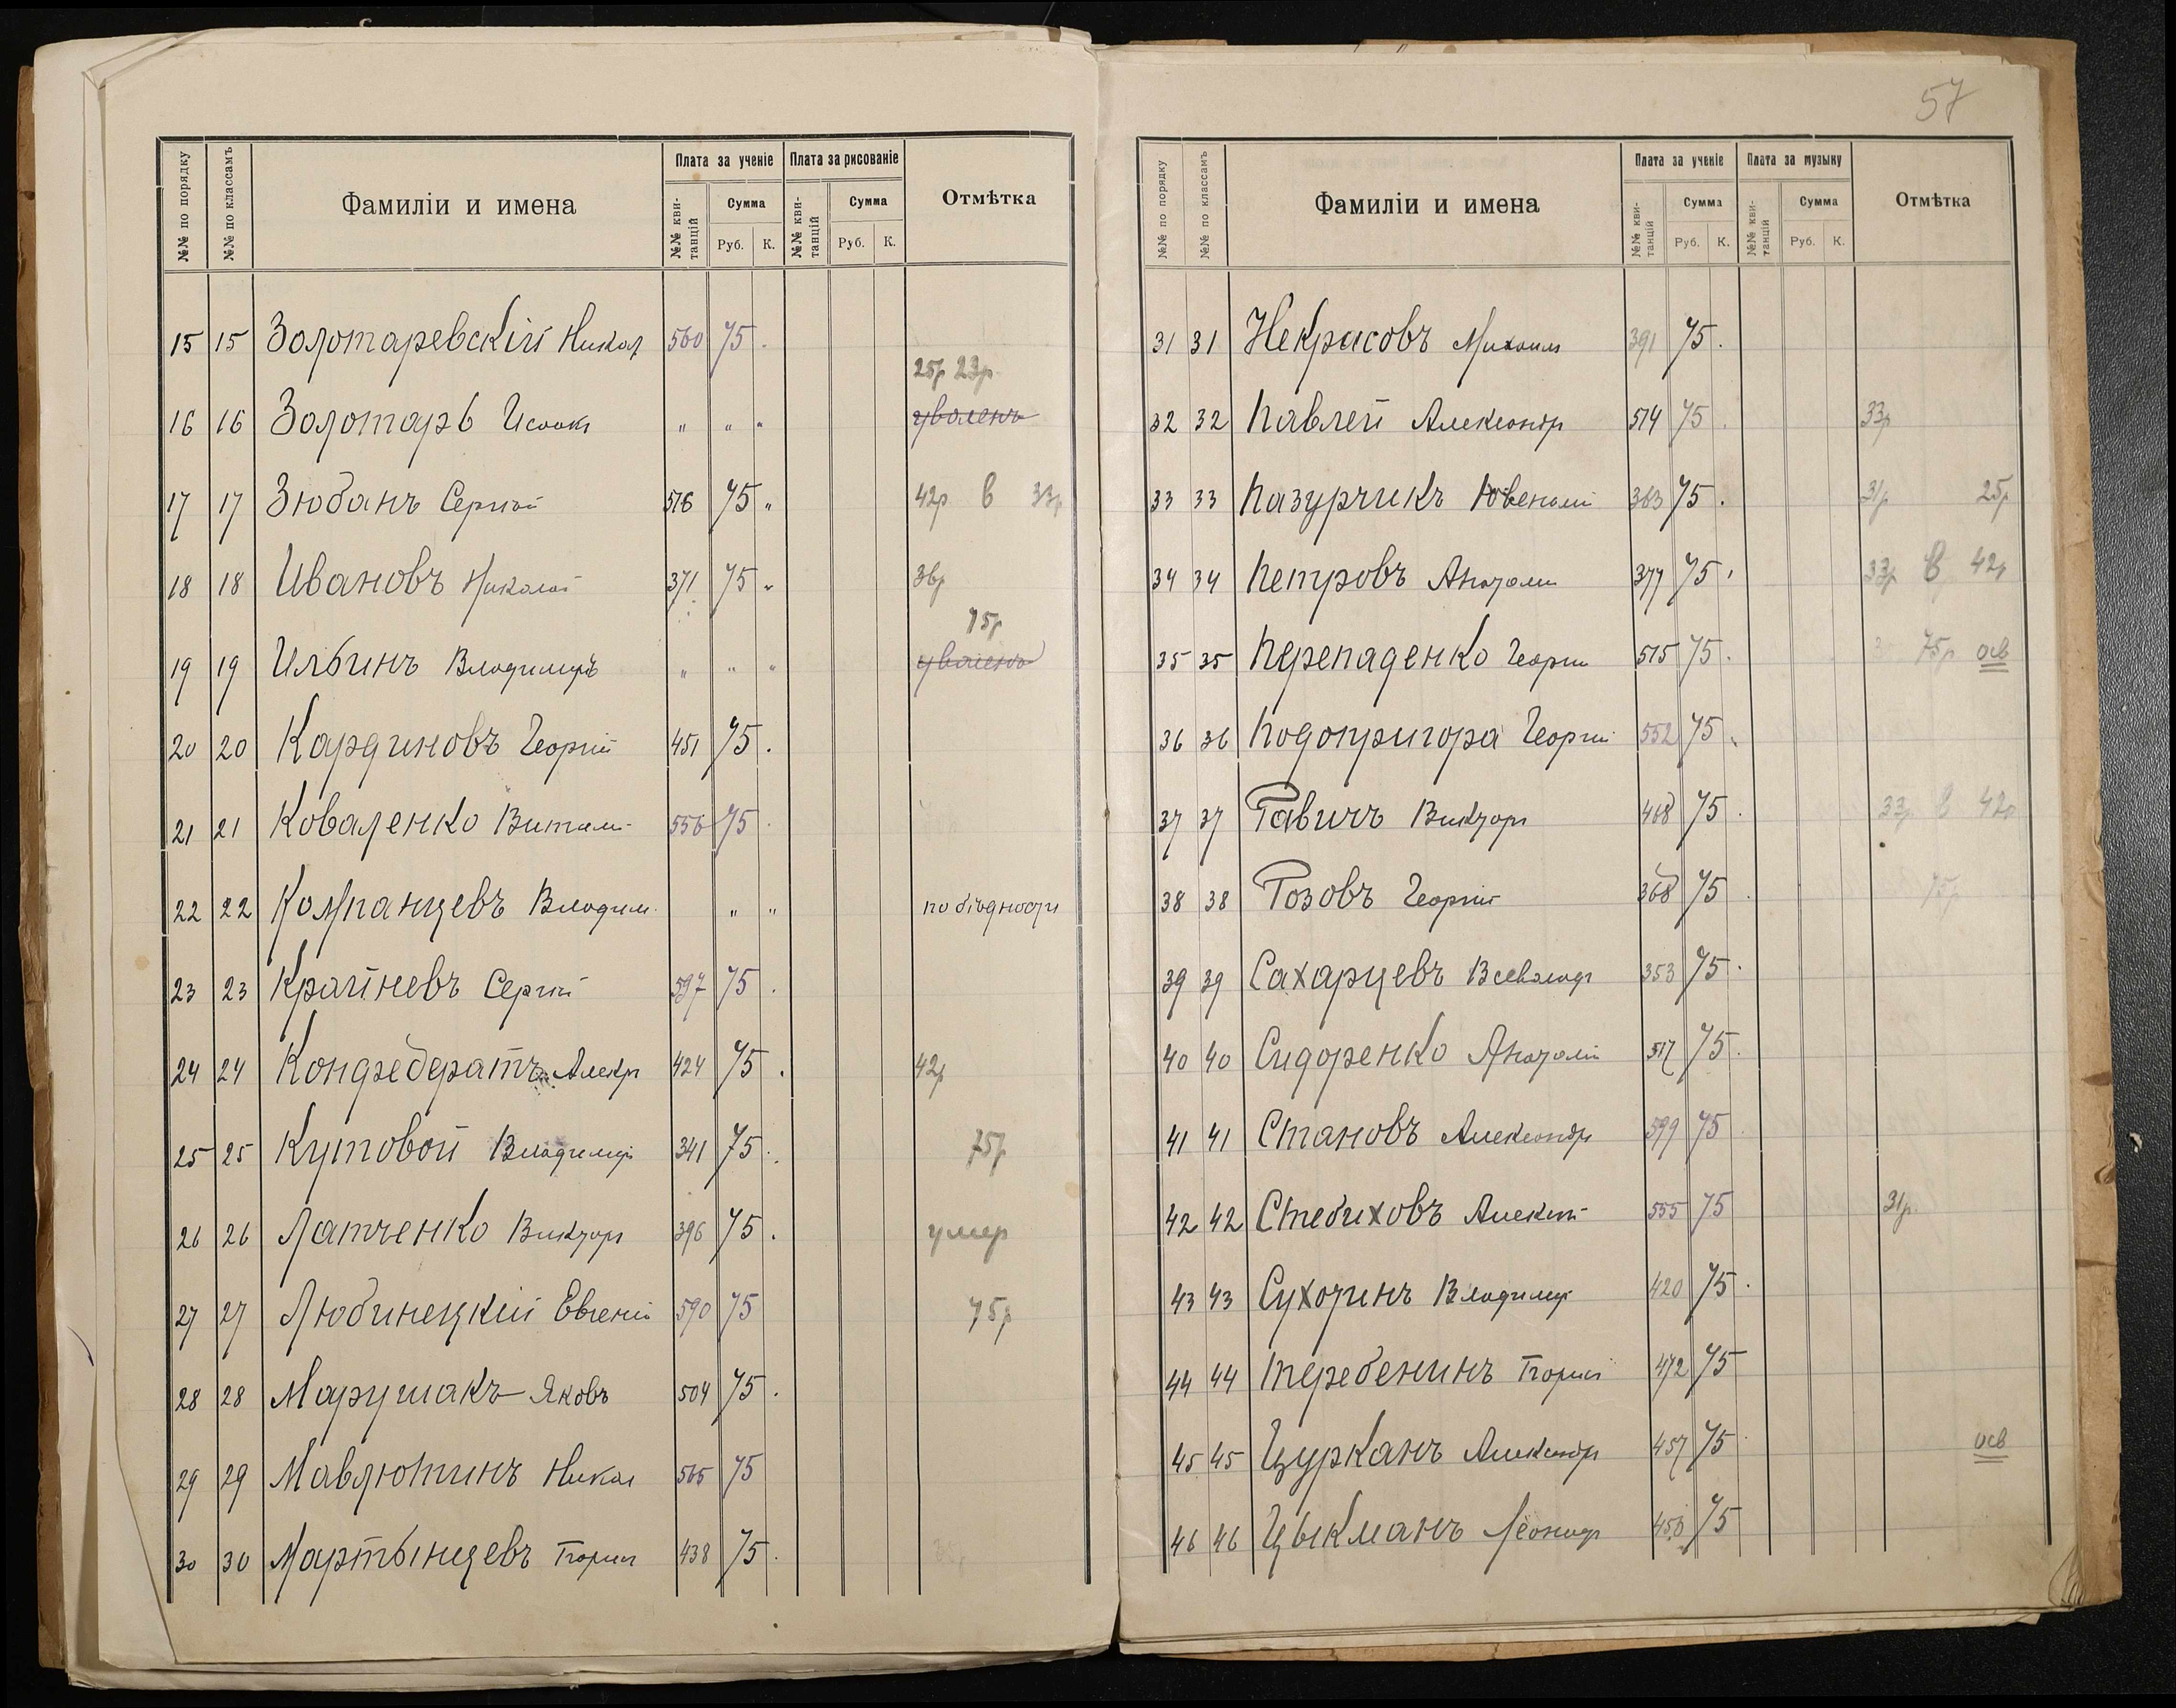 57
№№ по порядку №№ по классамъ Фамиліи и имена Плата за ученіе Плата за рисованіе Отмѣтка
№№ квитанцій Сумма №№ квитанцій Сумма
Руб. К. Руб. К.
15 15 Золотаревскій Никол 560 75 .
25р 23р
16 16 Золотарь Исаакъ " " " уволенъ
17 17 Зюбанъ Сергѣй 516 75 " 42р в 33р
18 18 Ивановъ Николай 371 75 " 36р
75р
19 19 Ильинъ Владимиръ " " " уволенъ
20 20 Кардиновъ Георгій 451 75 .
21 21 Коваленко Витали 556 75 .
22 22 Компанцевъ Владим. " " по бѣдности
23 23 Крайневъ Сергѣй 597 75 .
24 24 Конфедератъ Алекр 424 75 . 42р
25 25 Кутовой Владимиръ 341 75 . 75р
26 26 Латченко Викторъ 396 75 . умер
27 27 Любинецкій Евгеній 590 75 75р
28 28 Марушакъ Яковъ 504 75 .
29 29 Мавлютинъ Никол 565 75
30 30 Мартынцевъ Георгій 438 75 .
№№ по порядку №№ по классамъ Фамиліи и имена Плата за ученіе Плата за музыку Отмѣтка
№№ квитанцій Сумма №№ квитанцій Сумма
Руб. К. Руб. К.
31 31 Некрасовъ Михаилъ 391 75 .
32 32 Павлей Александр 514 75 . 33р
33 33 Пазурчикъ Ювеналій 363 75 . 31р 25р
34 34 Петровъ Анатолій 377 75 . 33р в 42р
35 35 Перепаденко Георгій 515 75 . 75р осв
36 36 Подопригора Георгій 552 75 .
37 37 Равичъ Викторъ 468 75 . 33р в 42р
38 38 Розовъ Георгій 368 75 . 75р
39 39 Сахарцевъ Всеволодъ 353 75 .
40 40 Сидоренко Анатолій 517 75 .
41 41 Становъ Александръ 599 75
42 42 Стебиховъ Алексѣй 555 75 31р.
43 43 Сухотинъ Владимиръ 420 75 .
44 44 Теребенинъ Георгій 472 75
45 45 Цурканъ Александръ 457 75 осв
46 46 Цыкманъ Леонидъ 450 75